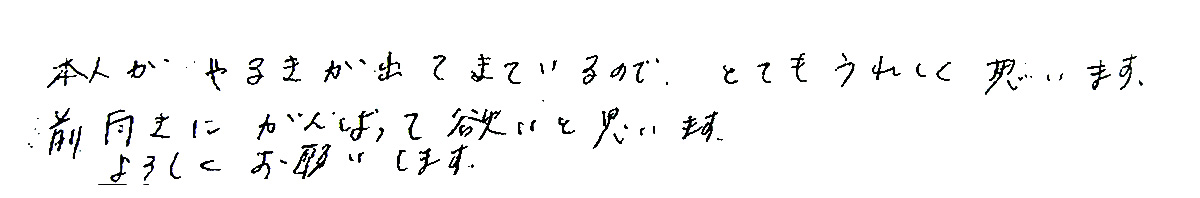 本人がやるきが出てきているので、とてもうれしく思います。
前向きにがんばって欲いと思います。
よろしくお願いします。